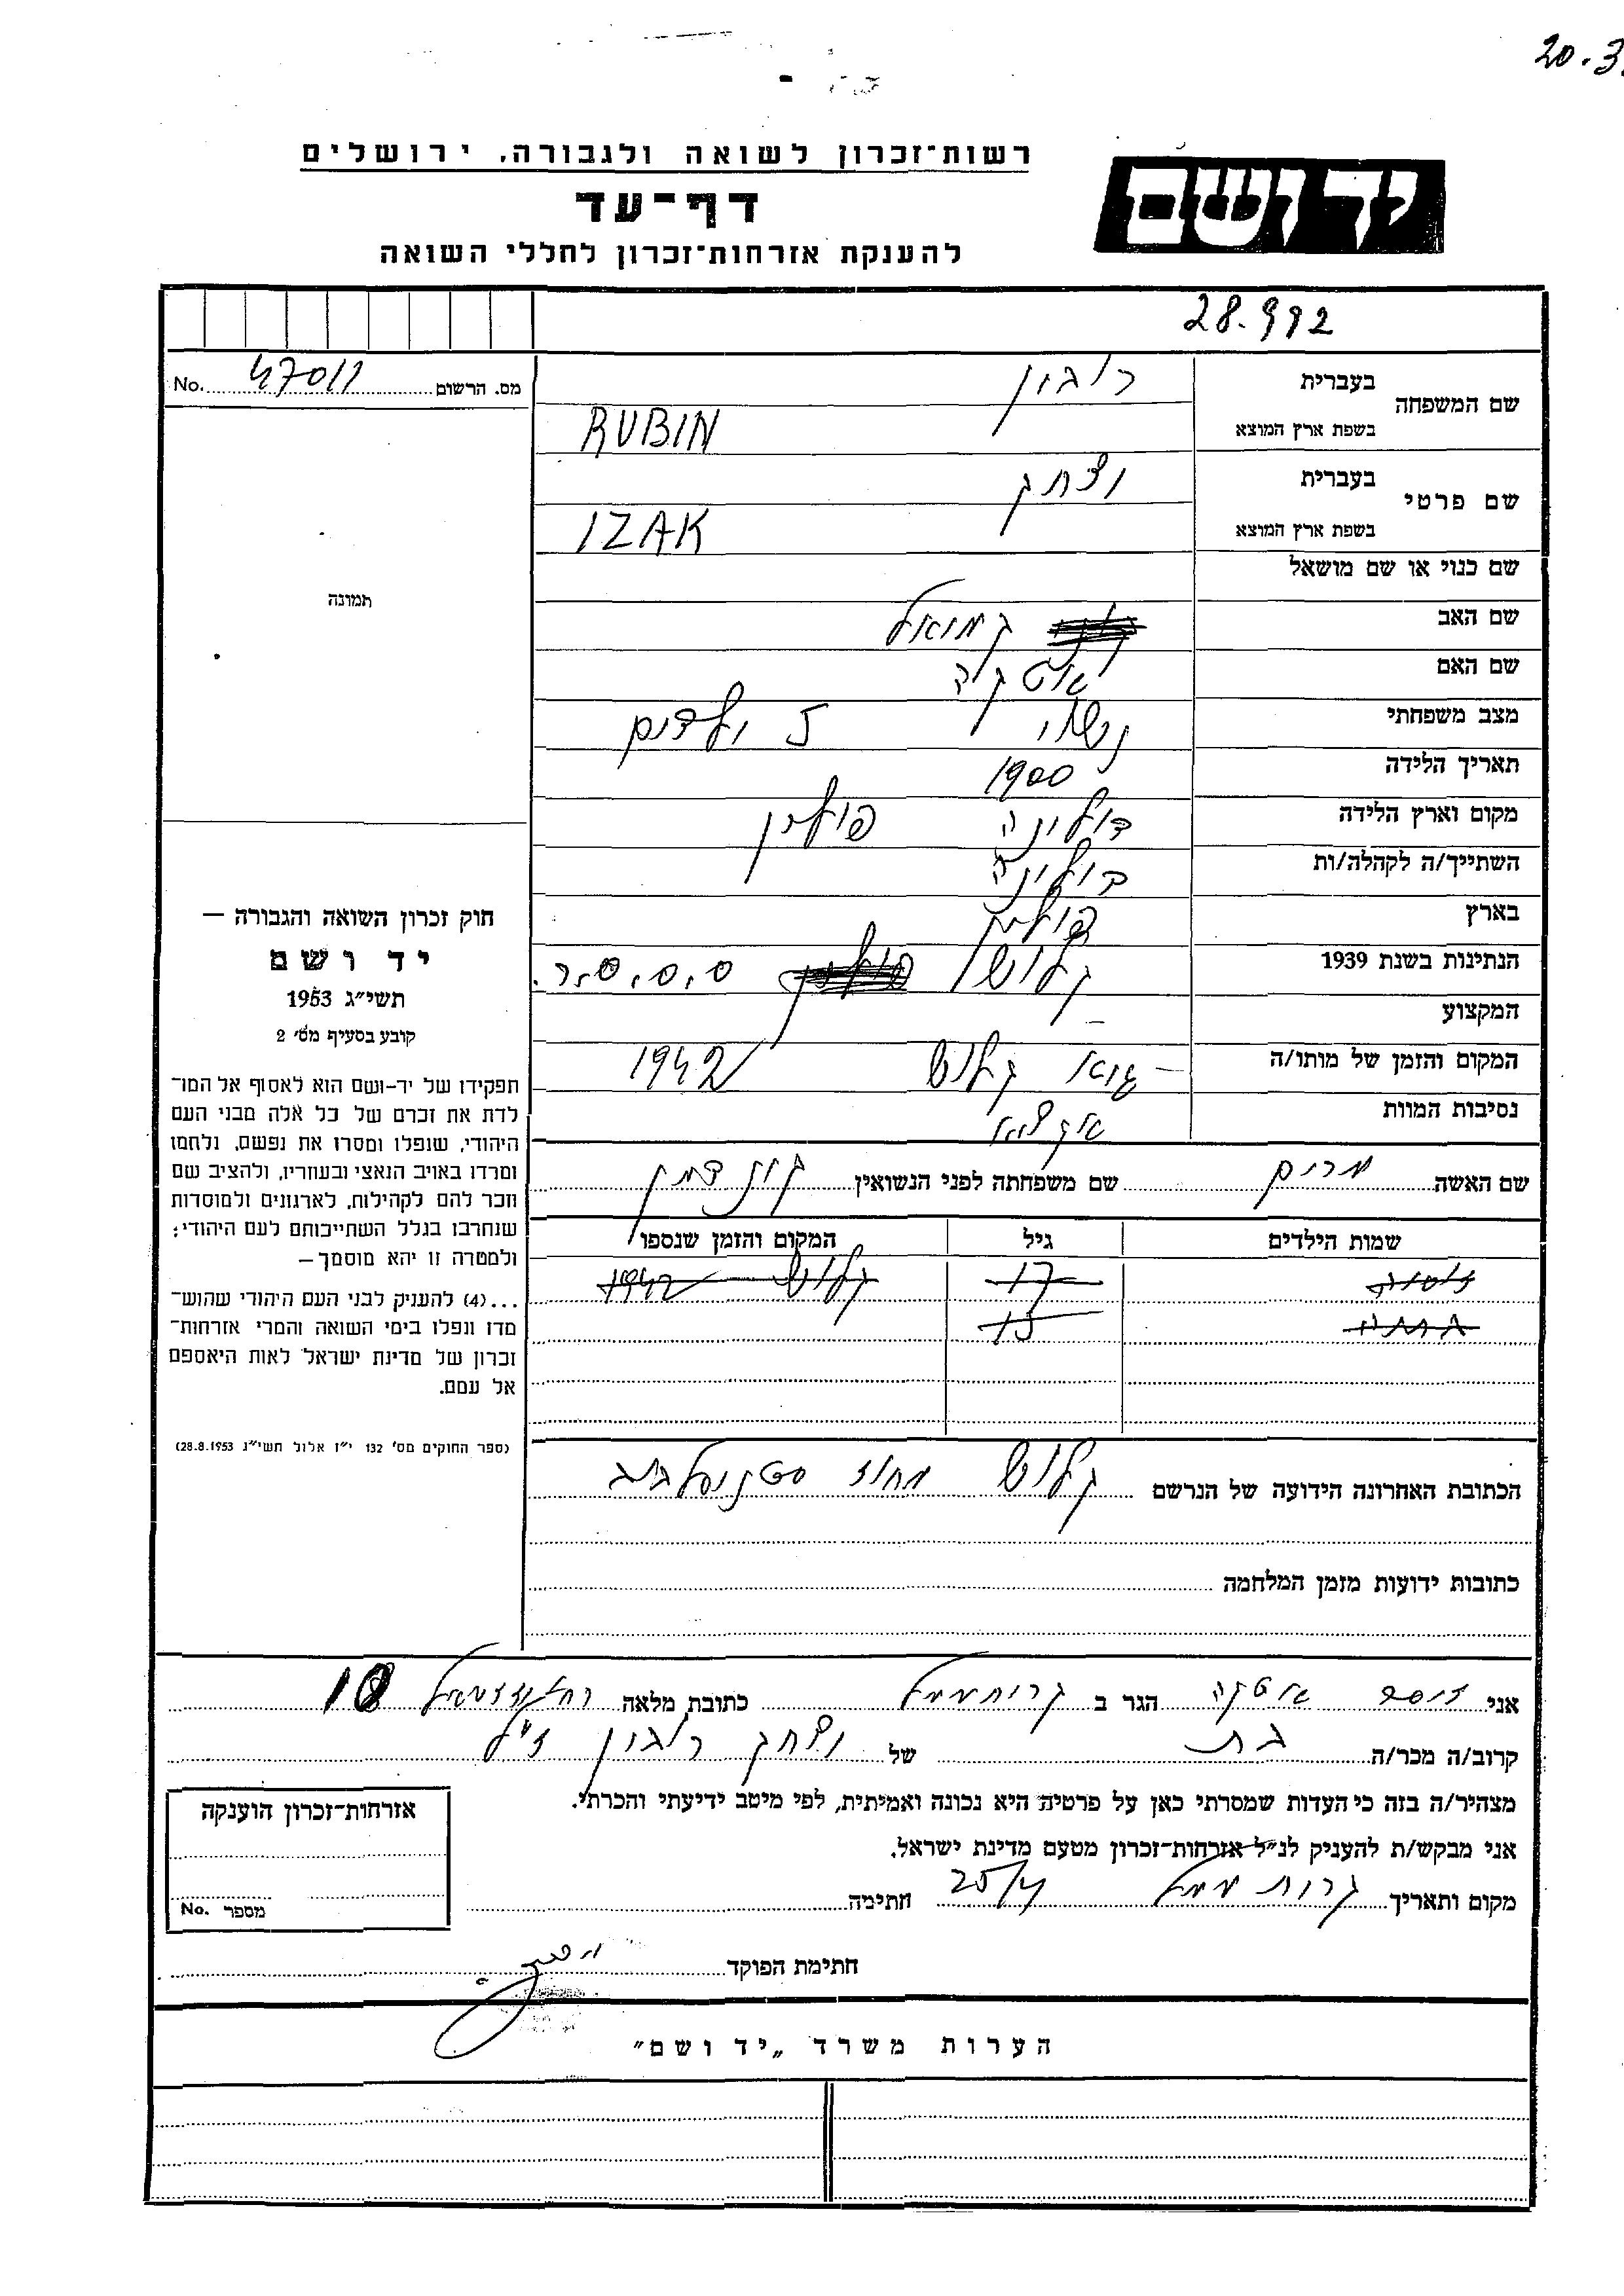 20.3.
רשות־זכרון לשואה ולגבורה, ירושלים
יד ושם
דף־עד
להענקת אזרחות־זכרון לחללי השואה
28.992
מס. הרשום 47011 No.
שם המשפחה בעברית רובין
בשפת ארץ המוצא RUBIN
שם פרטי בעברית יצחק
בשפת ארץ המוצא IZAK
שם כנוי או שם מושאל
תמונה
שם האב
שם האם
מצב משפחתי נשוי 5 ילדים
תאריך הלידה 1900
מקום וארץ הלידה דולינה פולין
השתייך/ה לקהלה/ות דולינה
בארץ פולין
הנתינות בשנת 1939 קלוש ס.ס.ס.ר.
המקצוע –
המקום והזמן של מותו/ה קלוש 1942
נסיבות המוות
שם האשה מרים שם משפחתה לפני הנשואין
שמות הילדים גיל המקום והזמן שנספו
17 קלוש 1942
15
הכתובת האחרונה הידועה של הנרשם קלוש מחוז
כתובות ידועות מזמן המלחמה
חוק זכרון השואה והגבורה —
יד ושם
תשי״ג 1953
קובע בסעיף מס׳ 2
תפקידו של יד-ושם הוא לאסוף אל המו־
לדת את זכרם של כל אלה מבני העם
היהודי, שנפלו ומסרו את נפשם, נלחמו
ומרדו באויב הנאצי ובעוזריו, ולהציב שם
וזכר להם לקהילות, לארגונים ולמוסדות
שנחרבו בגלל השתייכותם לעם היהודי;
ולמטרה זו יהא מוסמך —
...(4) להענק לבני העם היהודי שהוש־
מדו ונפלו בימי השואה והמרי אזרחות־
זכרון של מדינת ישראל לאות היאספם
אל עמם.
(ספר החוקים מס׳ 132 י״ז אלול תשי״ג 28.8.1953)
אני הגר ב כתובת מלאה 18
קרוב/ה מכר/ה בת של יצחק רובין ז״ל
מצהיר/ה בזה כי העדות שמסרתי כאן על פרטיה היא נכונה ואמיתית, לפי מיטב ידיעתי והכרתי.
אני מבקש/ת להעניק לנ״ל אזרחות־זכרון מטעם מדינת ישראל.
מקום ותאריך 25/4 חתימה
חתימת הפוקד
אזרחות־זכרון הוענקה
מספר No.
הערות משרד „יד ושם״